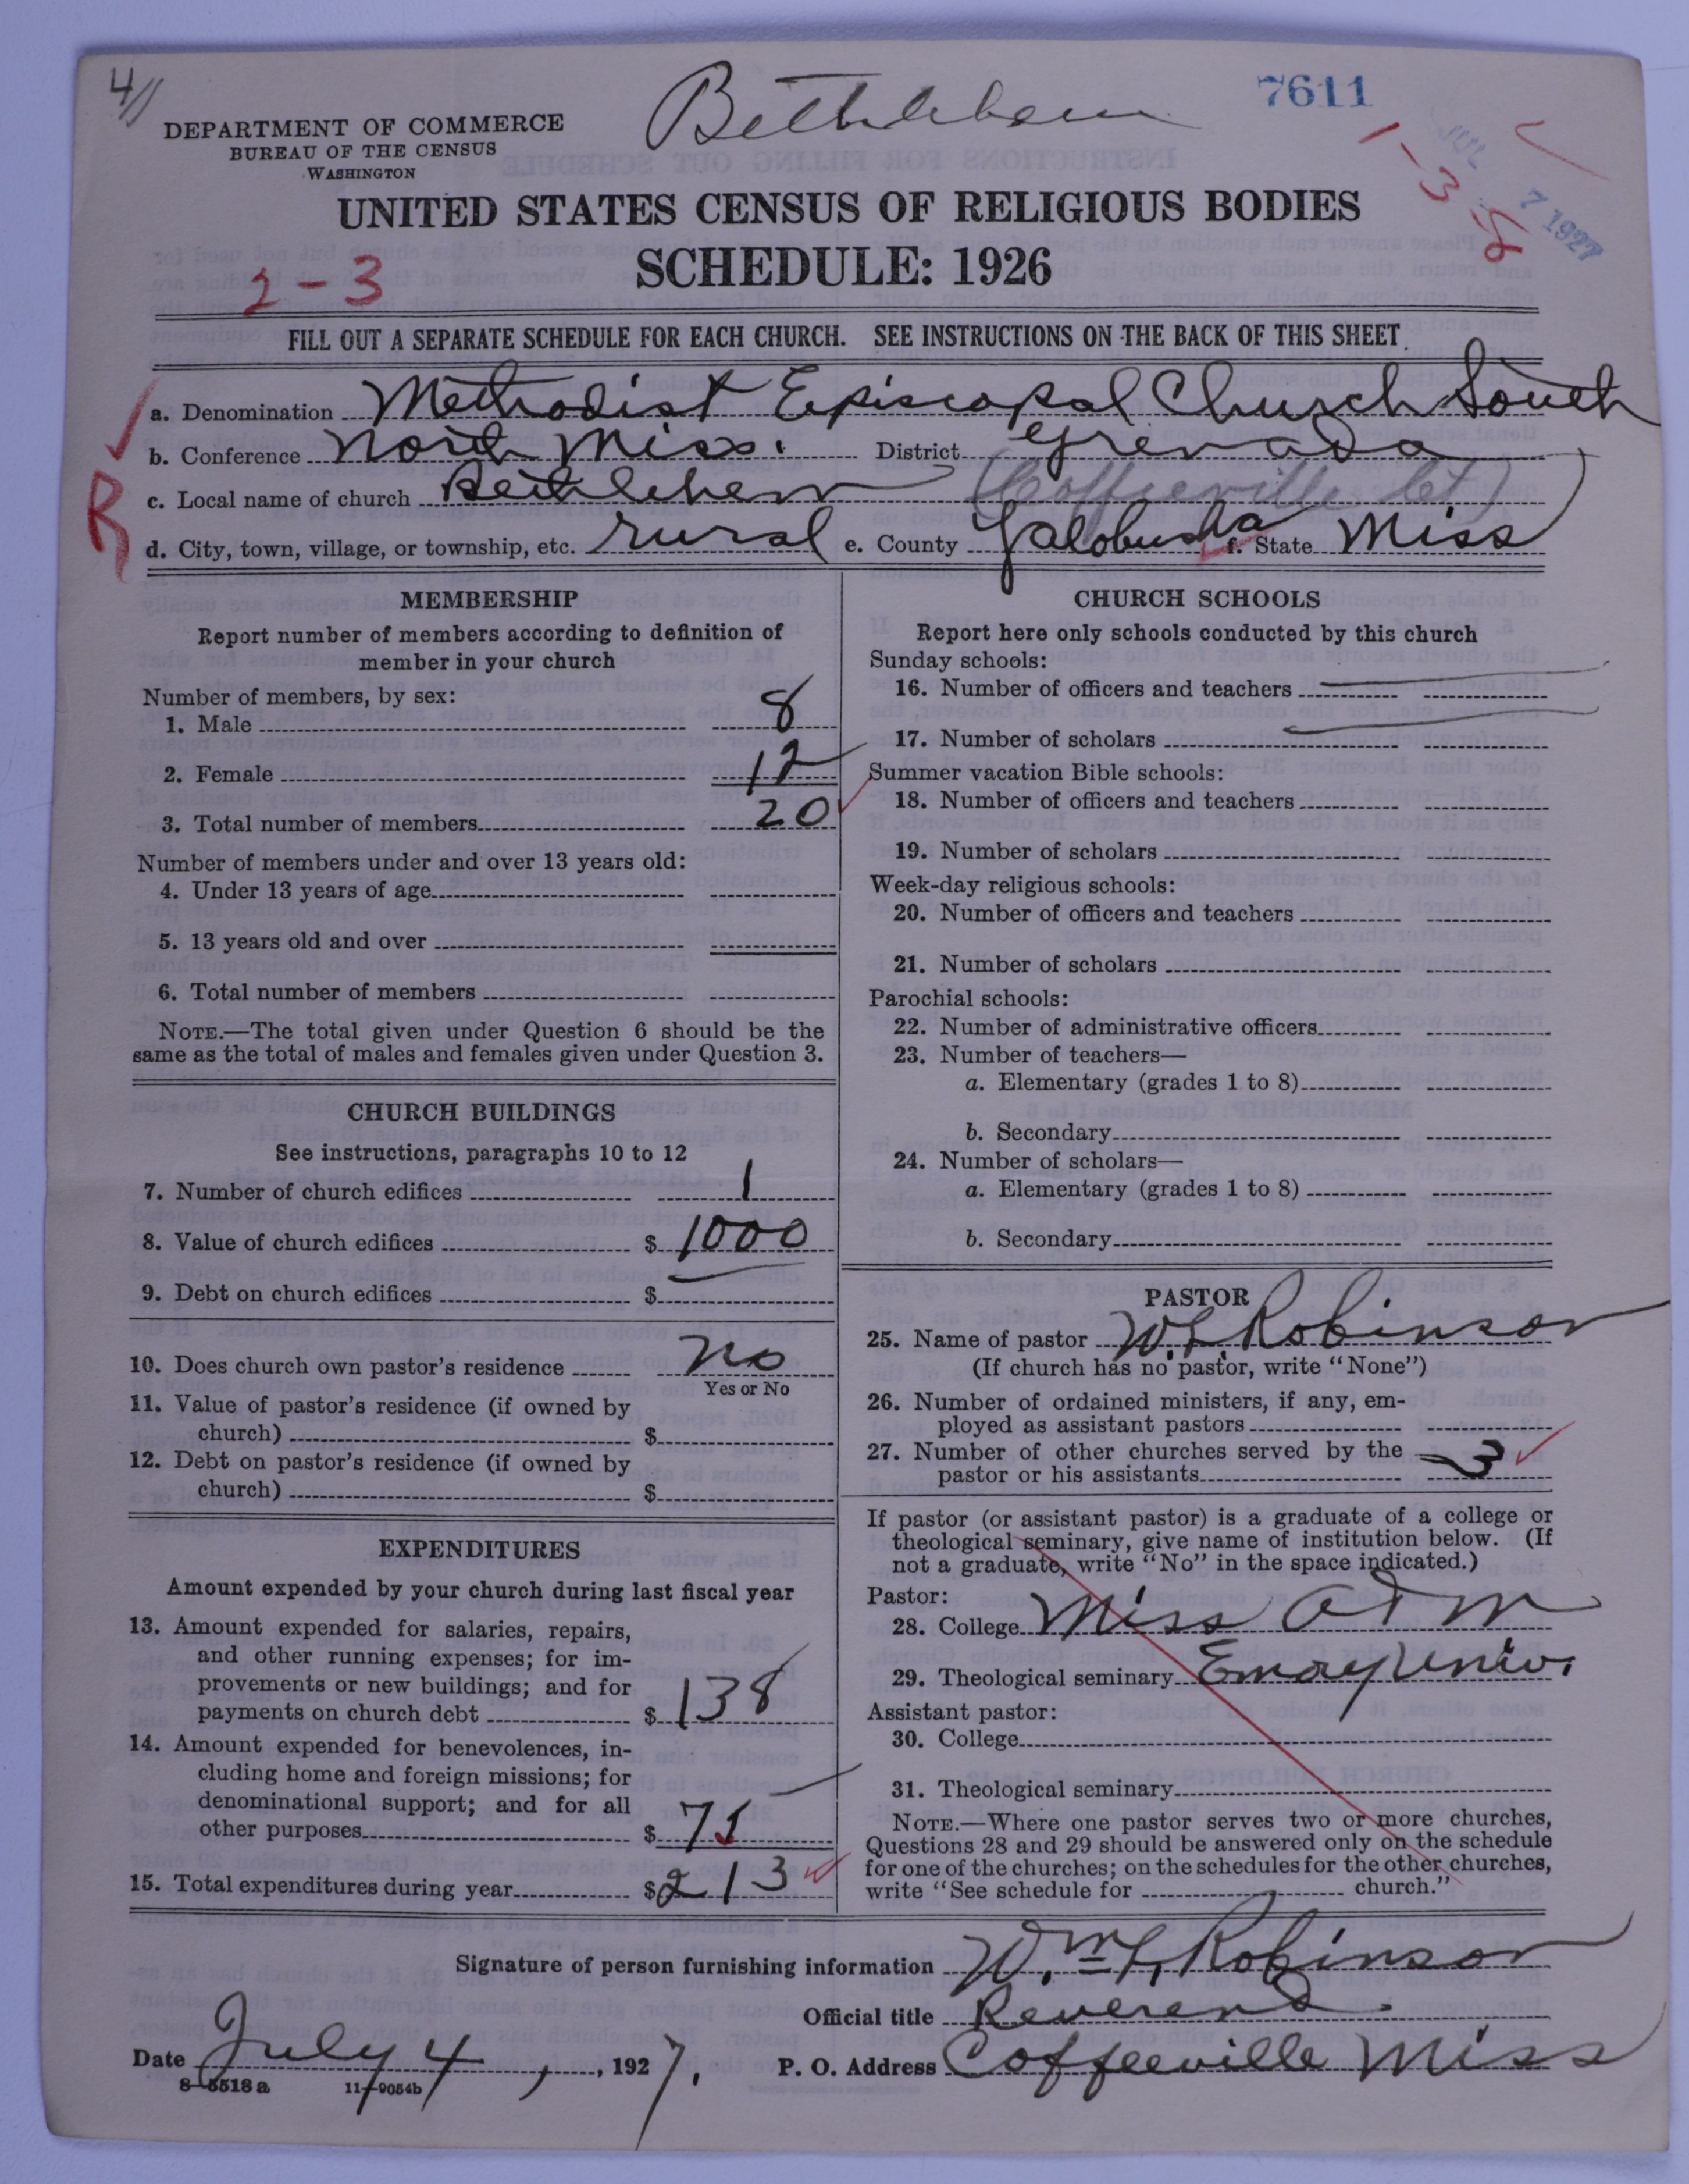 4
Bethlehem
7611
DEPARTMENT OF COMMERCE
BUREAU OF THE CENSUS
WASHINGTON
1-3-8
JUL 7 1927
UNITED STATES CENSUS OF RELIGIOUS BODIES
SCHEDULE: 1926
2-3
FILL OUT A SEPARATE SCHEDULE FOR EACH CHURCH. SEE INSTRUCTIONS ON THE BACK OF THIS SHEET
a. Denomination Methodist Episcopal Church South
b. Conference North Miss. District Grenada
c. Local name of church Bethlehem (Coffeeville Ct)
R
d. City, town, village, or township, etc. rural e. County Yalobusha f. State Miss
MEMBERSHIP
Report number of members according to definition of
member in your church
Number of members, by sex:
1. Male 8
2. Female 12
3. Total number of members 20
Number of members under and over 13 years old:
4. Under 13 years of age
5. 13 years old and over
6. Total number of members
NOTE.—The total given under Question 6 should be the
same as the total of males and females given under Question 3.
CHURCH BUILDINGS
See instructions, paragraphs 10 to 12
7. Number of church edifices 1
8. Value of church edifices $ 1000
9. Debt on church edifices $
10. Does church own pastor's residence no
Yes or No
11. Value of pastor's residence (if owned by
church) $
12. Debt on pastor's residence (if owned by
church) $
EXPENDITURES
Amount expended by your church during last fiscal year
13. Amount expended for salaries, repairs,
and other running expenses; for im-
provements or new buildings; and for
payments on church debt $ 138
14. Amount expended for benevolences, in-
cluding home and foreign missions; for
denominational support; and for all
other purposes $ 75
15. Total expenditures during year $ 213
CHURCH SCHOOLS
Report here only schools conducted by this church
Sunday schools:
16. Number of officers and teachers
17. Number of scholars
Summer vacation Bible schools:
18. Number of officers and teachers
19. Number of scholars
Week-day religious schools:
20. Number of officers and teachers
21. Number of scholars
Parochial schools:
22. Number of administrative officers
23. Number of teachers—
a. Elementary (grades 1 to 8)
b. Secondary
24. Number of scholars—
a. Elementary (grades 1 to 8)
b. Secondary
PASTOR
25. Name of pastor W. L. Robinson
(If church has no pastor, write "None")
26. Number of ordained ministers, if any, em-
ployed as assistant pastors
27. Number of other churches served by the
pastor or his assistants 3
If pastor (or assistant pastor) is a graduate of a college or
theological seminary, give name of institution below. (If
not a graduate, write "No" in the space indicated.)
Pastor:
28. College Miss A & M
29. Theological seminary Emory Univ.
Assistant pastor:
30. College
31. Theological seminary
NOTE.—Where one pastor serves two or more churches,
Questions 28 and 29 should be answered only on the schedule
for one of the churches; on the schedules for the other churches,
write "See schedule for church."
Signature of person furnishing information Wm. L. Robinson
Official title Reverend.
Date July 4, 1927. P. O. Address Coffeeville Miss
8-5518 a 11-9054b